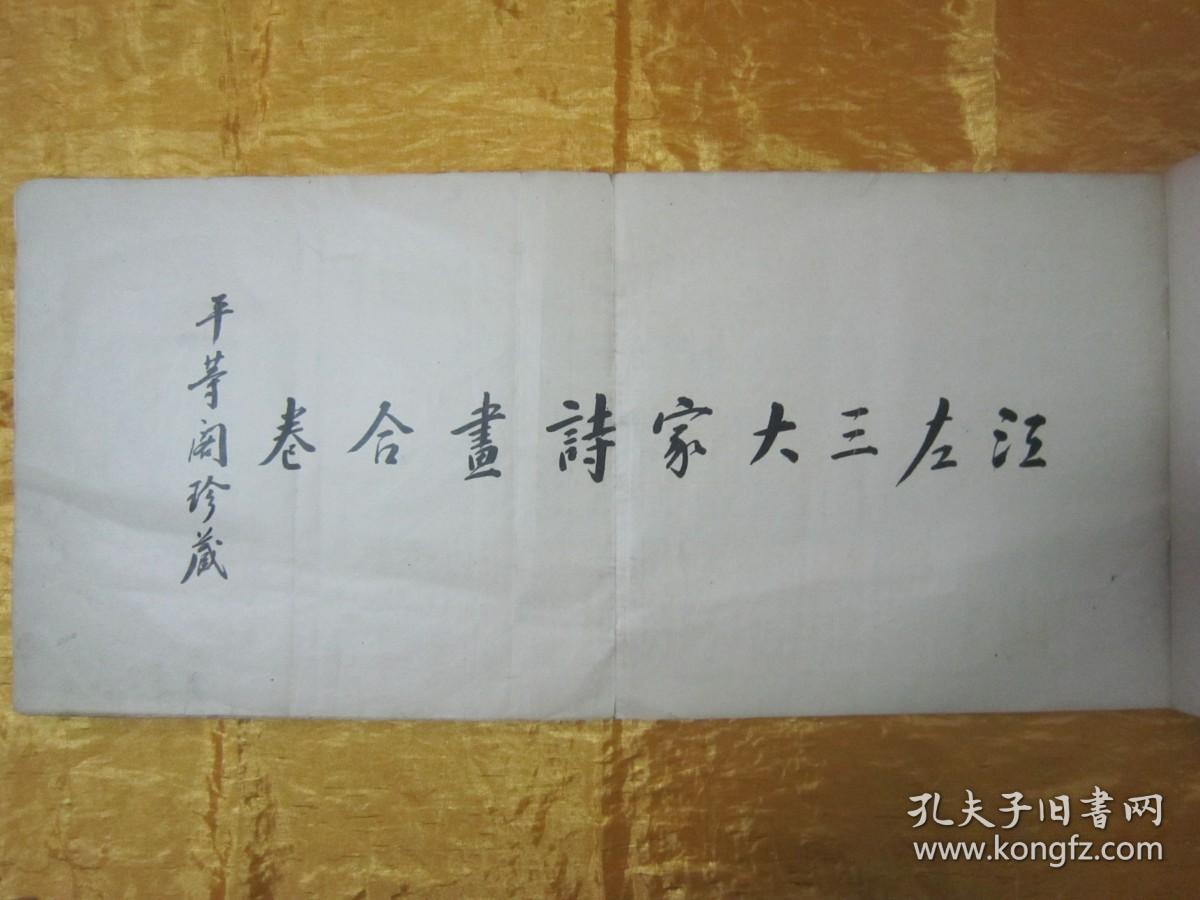 江左三大家詩畫合卷
平等阁珍藏
孔夫子旧書网
www.kongfz.com